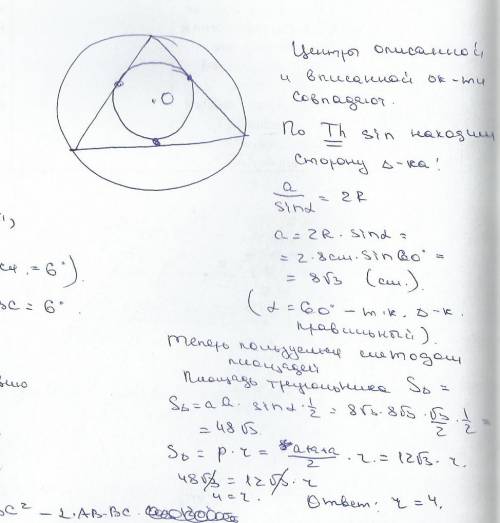 O
Центры описанной
и вписанной ок-ти
совпадают.
По Th sin находим
сторону Δ-ка:
a/sinα = 2R
a = 2R · sinα =
= 2·8см·sin60° =
= 8√3 (см).
(α = 60° – т.к. Δ-к
правильный).
Теперь пользуемся методом
площадей
Площадь треугольника SΔ =
SΔ = a·a · sinα · 1/2 = 8√3·8√3·√3/2·1/2 =
= 48√3.
SΔ = p·r = a+a+a/2 · r = 12√3 · r.
48√3 = 12√3 · r
4 = r.
Ответ: r = 4.
= 6°).
BC = 6°
BC² – 2·AB·BC·